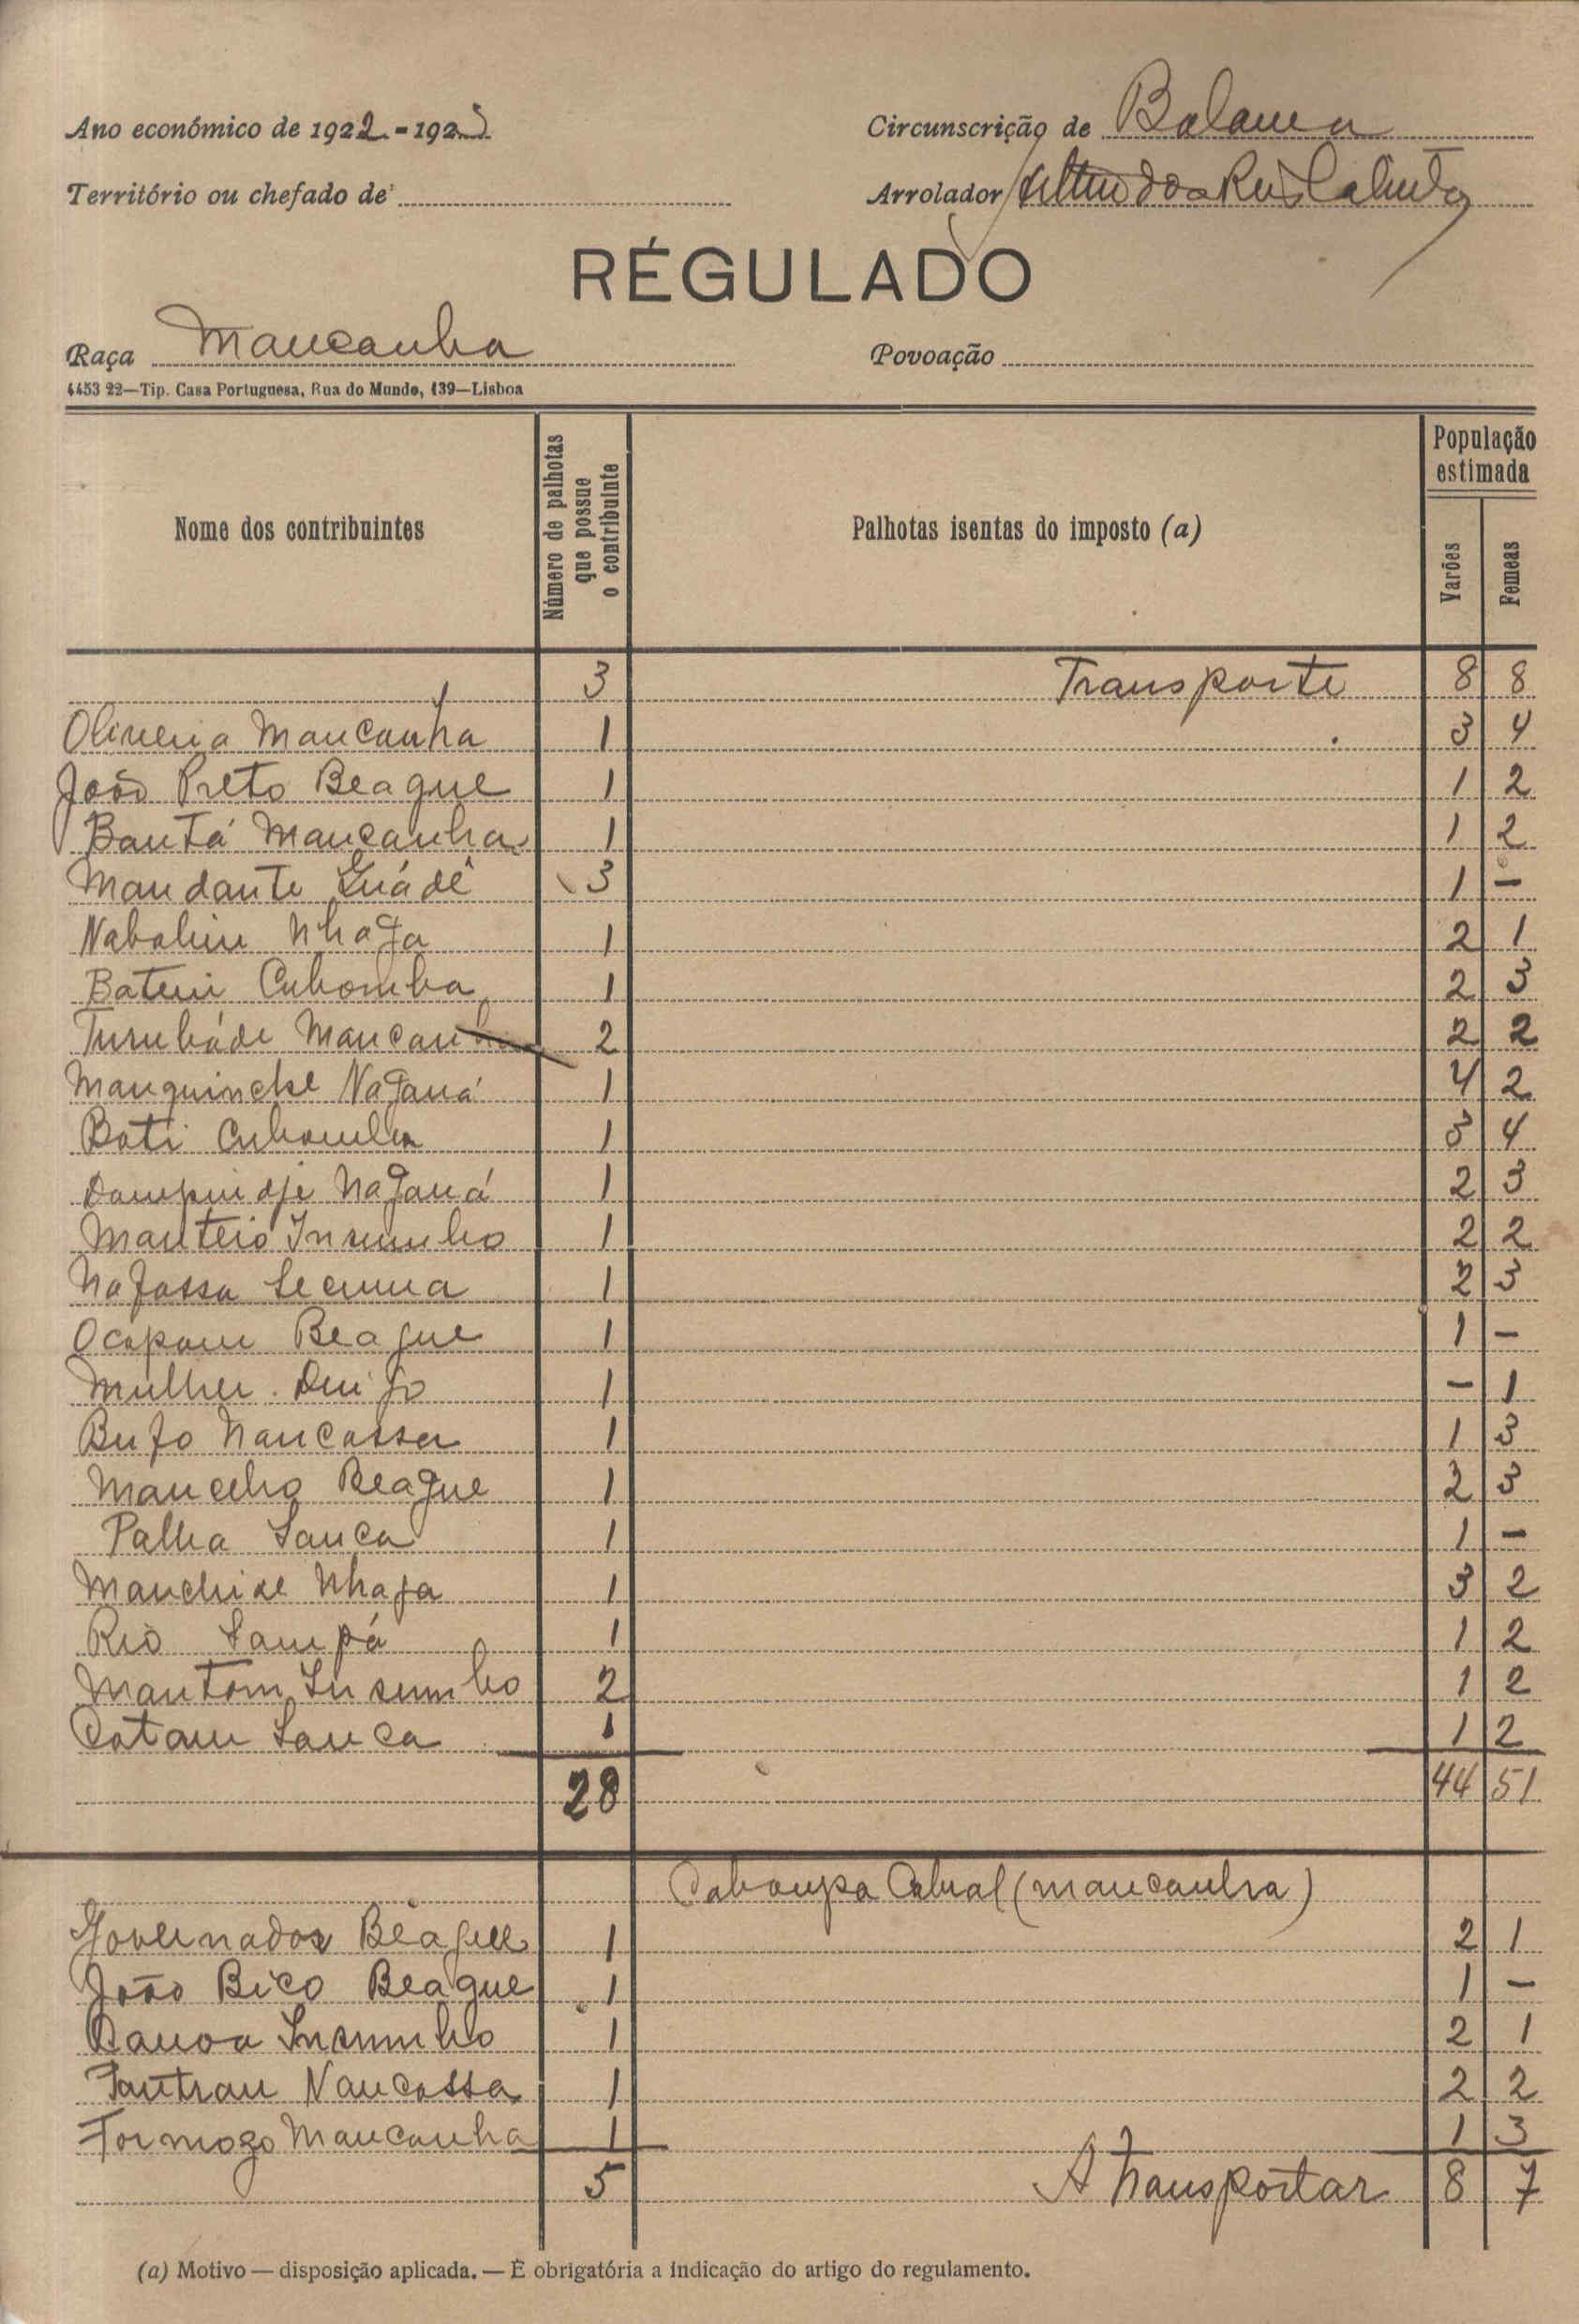 Ano económico de 1922-1923
Circunscrição de Bolama
Território ou chefado de
Arrolador
RÉGULADO
Raça Mancanha
Povoação
4453 22—Tip. Casa Portuguesa, Rua do Mundo, 139—Lisboa
Nome dos contribuintes
Número de palhotas que possue o contribuinte
Palhotas isentas do imposto (a)
População estimada
Varões
Femeas
3 Transporte 8 8
Oliveira Mancanha 1 3 4
João Preto Beague 1 1 2
Bantá Mancanha 1 1 2
Mandante 3 1 -
Nhaga 1 2 1
Cubomba 1 2 3
Mancanha 2 2 2
Manguinche Naganá 1 4 2
Bati Cubomba 1 3 4
Naganá 1 2 3
Insumbo 1 2 2
1 2 3
Beague 1 1 -
Mulher 1 - 1
Bufo Nancassa 1 1 3
Beague 1 2 3
Palha Sanca 1 1 -
Nhaga 1 3 2
Rio Sampá 1 1 2
Mantom Insumbo 2 1 2
Catam Sanca 1 1 2
28 44 51
Cabral (mancanha)
Governador Beague 1 2 1
João Bico Beague 1 1 -
Insumbo 1 2 1
Nancassa 1 2 2
Formozo Mancanha 1 1 3
5 A transportar 8 7
(a) Motivo — disposição aplicada. — É obrigatória a indicação do artigo do regulamento.